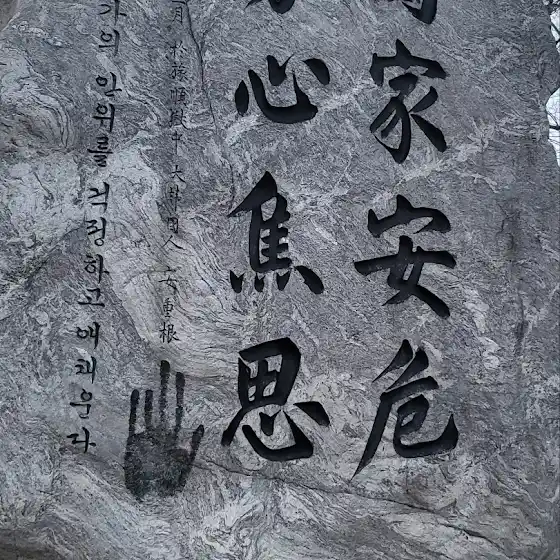 家安危
心焦思
月 於旅順獄中 大韓国人 安重根
가의 안위를 걱정하고 애태운다